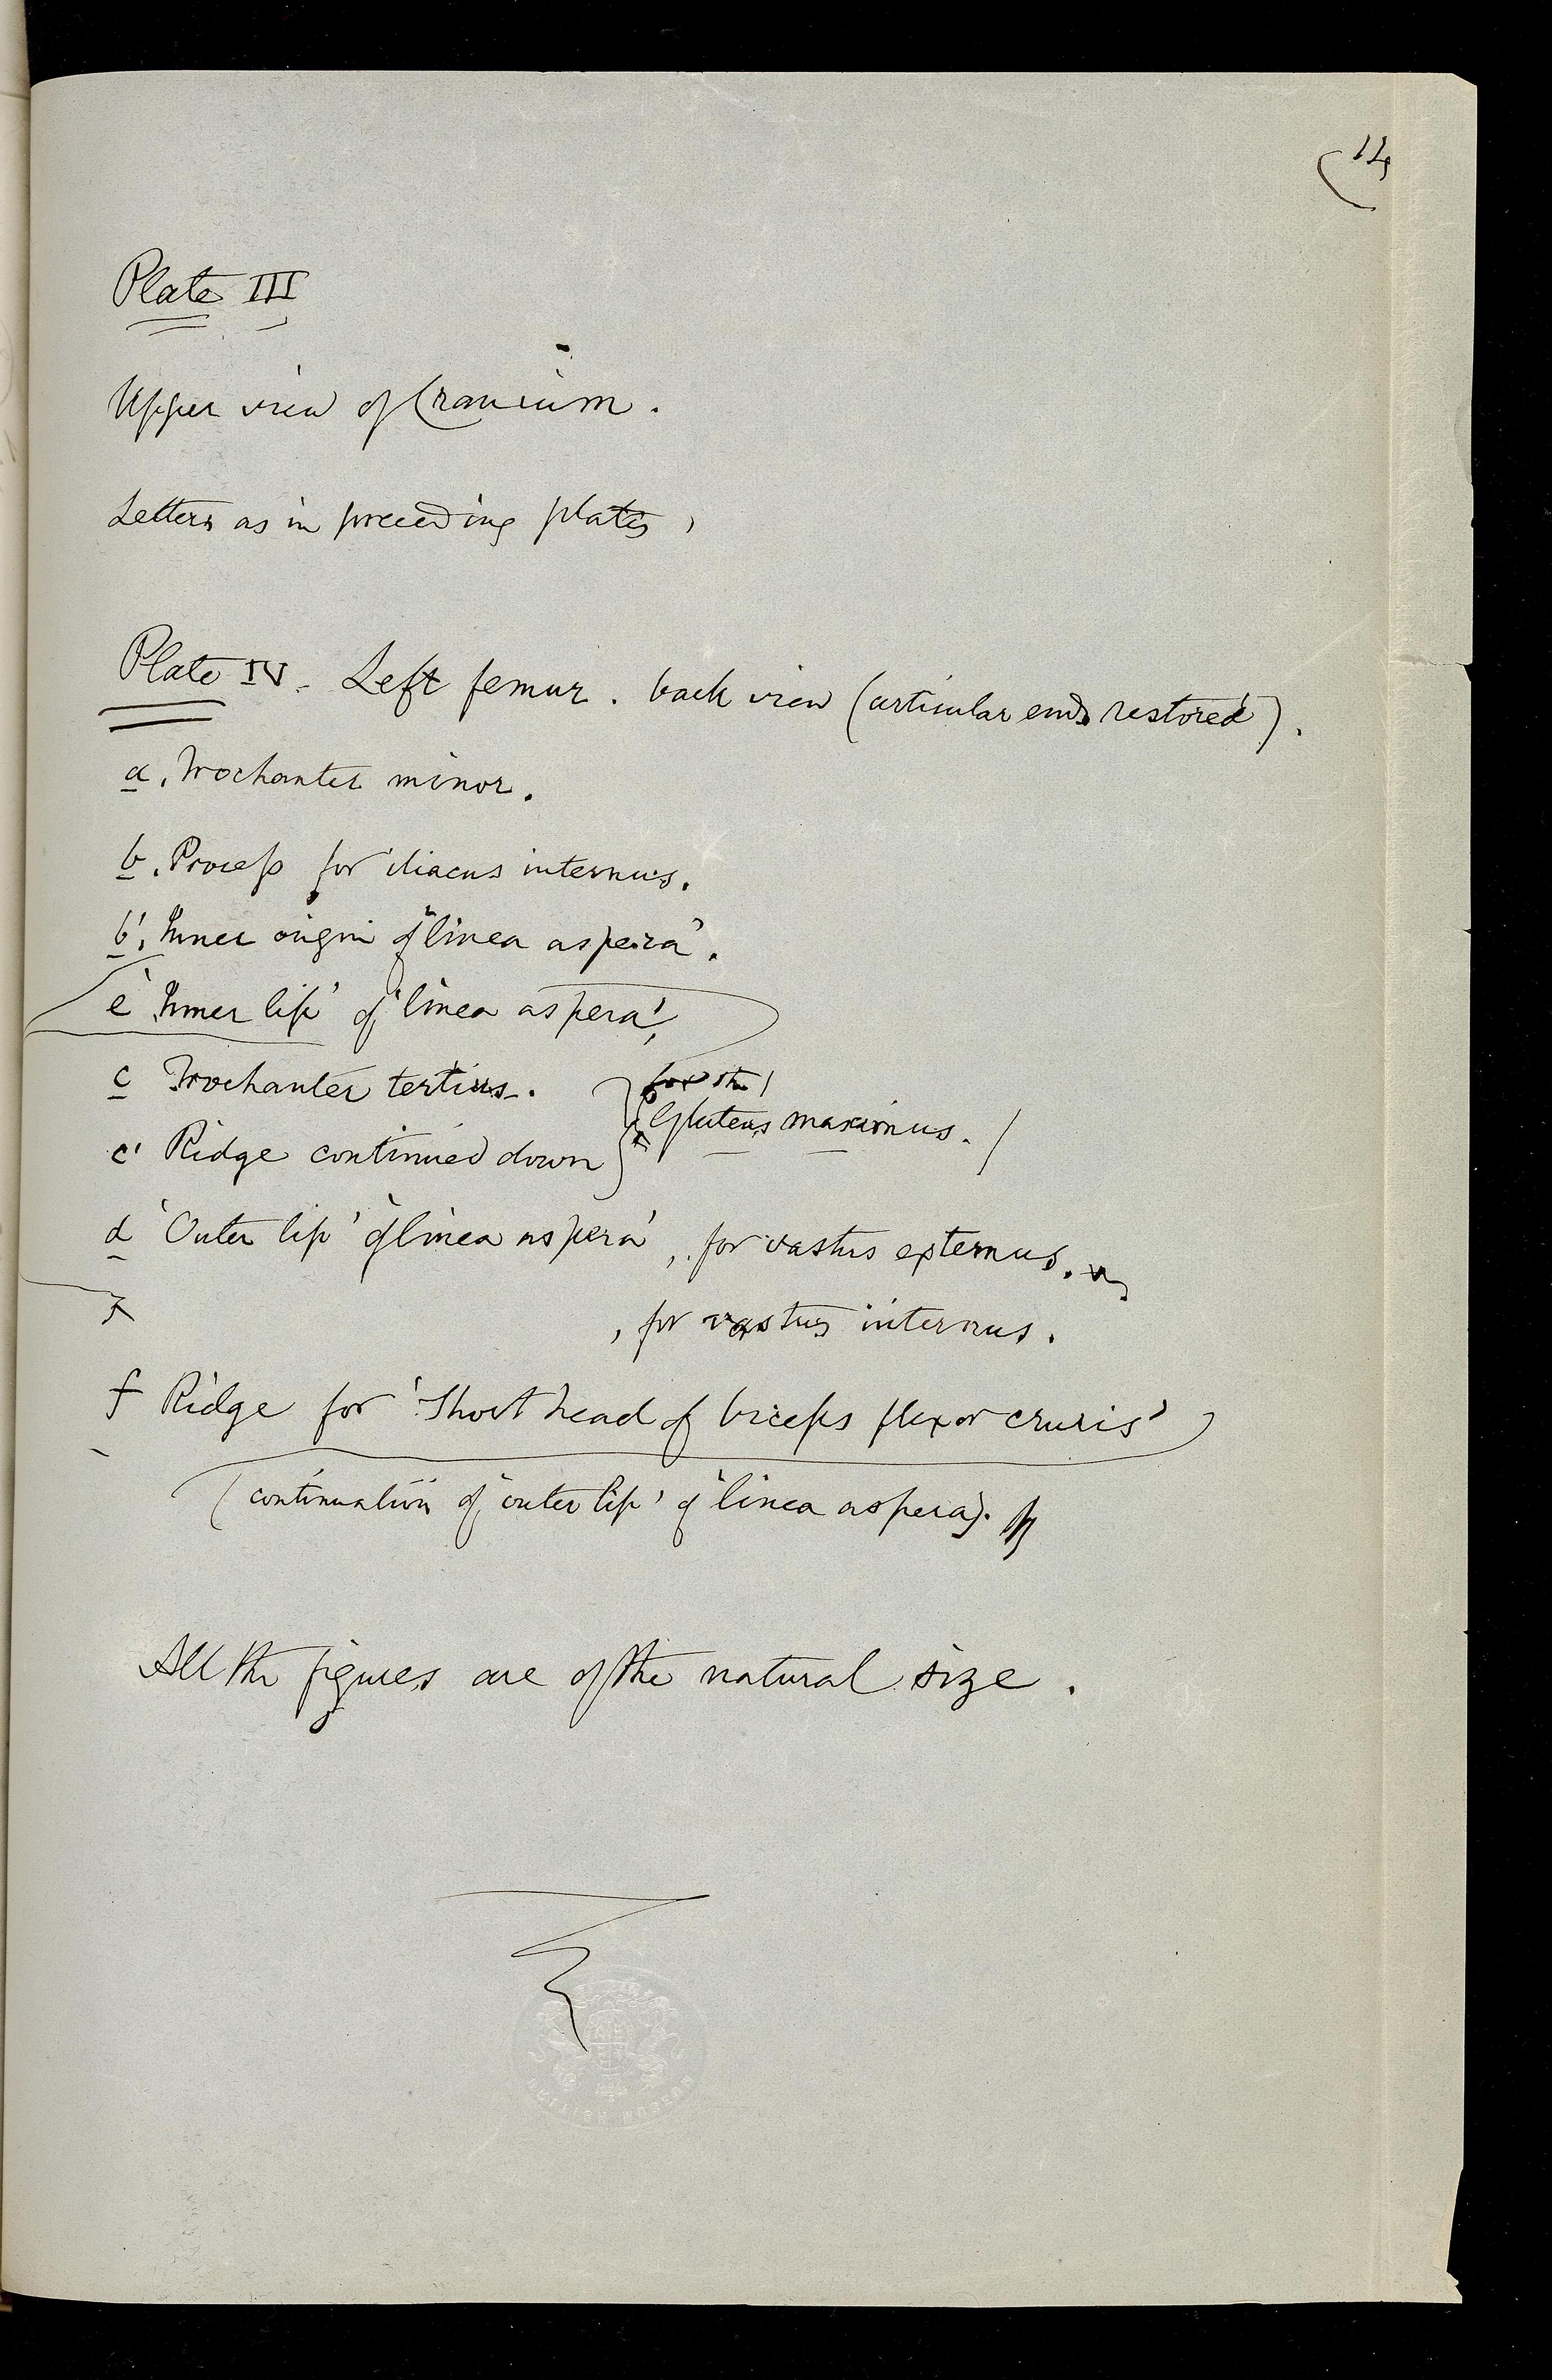 14
Plate III
Upper view of Cranium.
Letters as in preceeding plates,
Plate IV. Left femur. back view (articular ends restored).
a. Trochanter minor.
b. Process for iliacus internus.
b'. Inner origin of 'linea aspera'.
e 'Inner lip' of 'linea aspera',
c Trochanter tertius.
for the
Gluteus maximus.
c' Ridge continued down
d 'Outer lip' of 'linea aspera', for vastus externus.
, for vastus internus.
f Ridge for 'Short head of biceps flexor cruris'
(continuation of 'outer lip' of 'linea aspera').
All the figures are of the natural size.
BRITISH MUSEUM